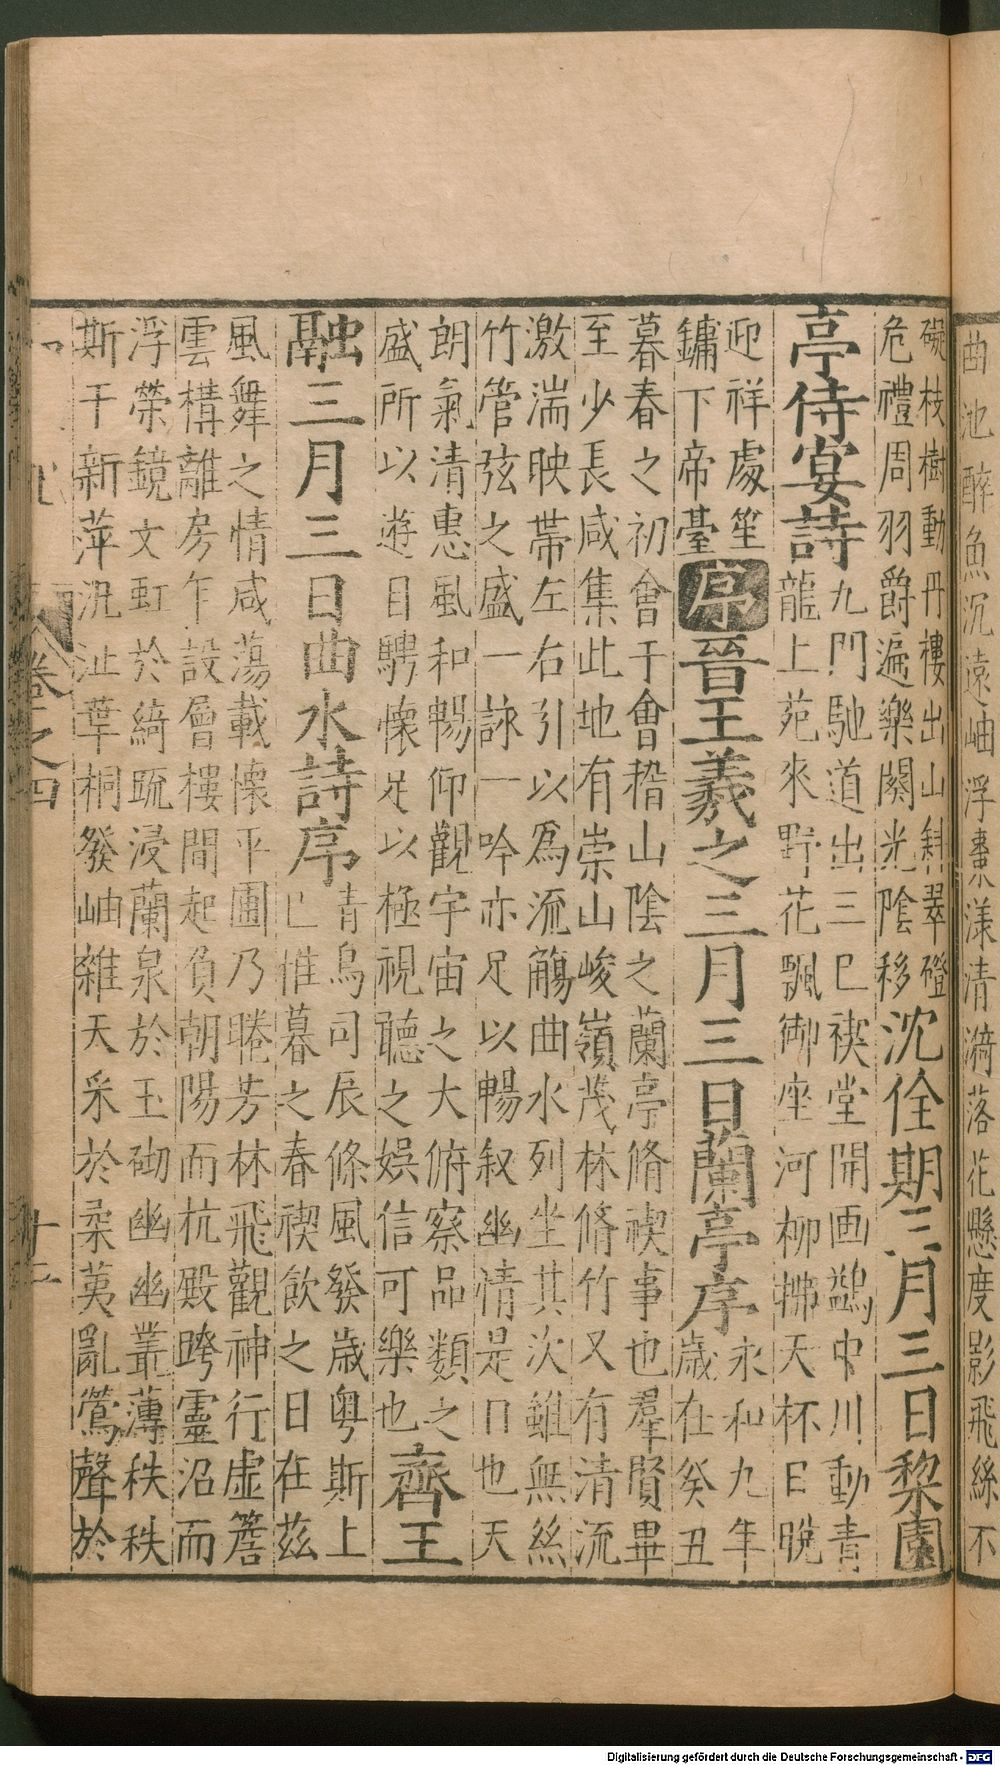 曲池醉魚沉遠岫浮棗漾清漪落花懸度影飛絲不
礙枝樹動丹樓出山斜翠磴
危禮周羽爵遍樂闋光陰移
沈佺期三月三日黎園
亭侍宴詩
九門馳道出三巳禊堂開画鷁中川動青
龍上苑來野花飄御座河柳拂天杯日晚
迎祥處笙
鏞下帝臺
序
晉王羲之三月三日蘭亭序
永和九年
歲在癸丑
暮春之初會于會稽山陰之蘭亭脩禊事也羣賢畢
至少長咸集此地有崇山峻嶺茂林脩竹又有清流
激湍映帶左右引以爲流觴曲水列坐其次雖無絲
竹管弦之盛一詠一吟亦足以暢叙幽情是日也天
朗氣清惠風和暢仰觀宇宙之大俯察品類之
盛所以遊目騁懷足以極視聽之娛信可樂也
齊王
融三月三日曲水詩序
青鳥司辰條風發歲粤斯上
巳惟暮之春禊飲之日在茲
風舞之情咸蕩載懷平圃乃睠芳林飛觀神行虛簷
雲構離房乍設層樓間起負朝陽而杭殿跨靈沼而
浮榮鏡文虹於綺疏浸蘭泉於玉砌幽幽叢薄秩秩
斯干新萍汎沚華桐發岫雜夭采於柔荑亂鶯聲於
卷之四
Digitalisierung gefördert durch die Deutsche Forschungsgemeinschaft - DFG